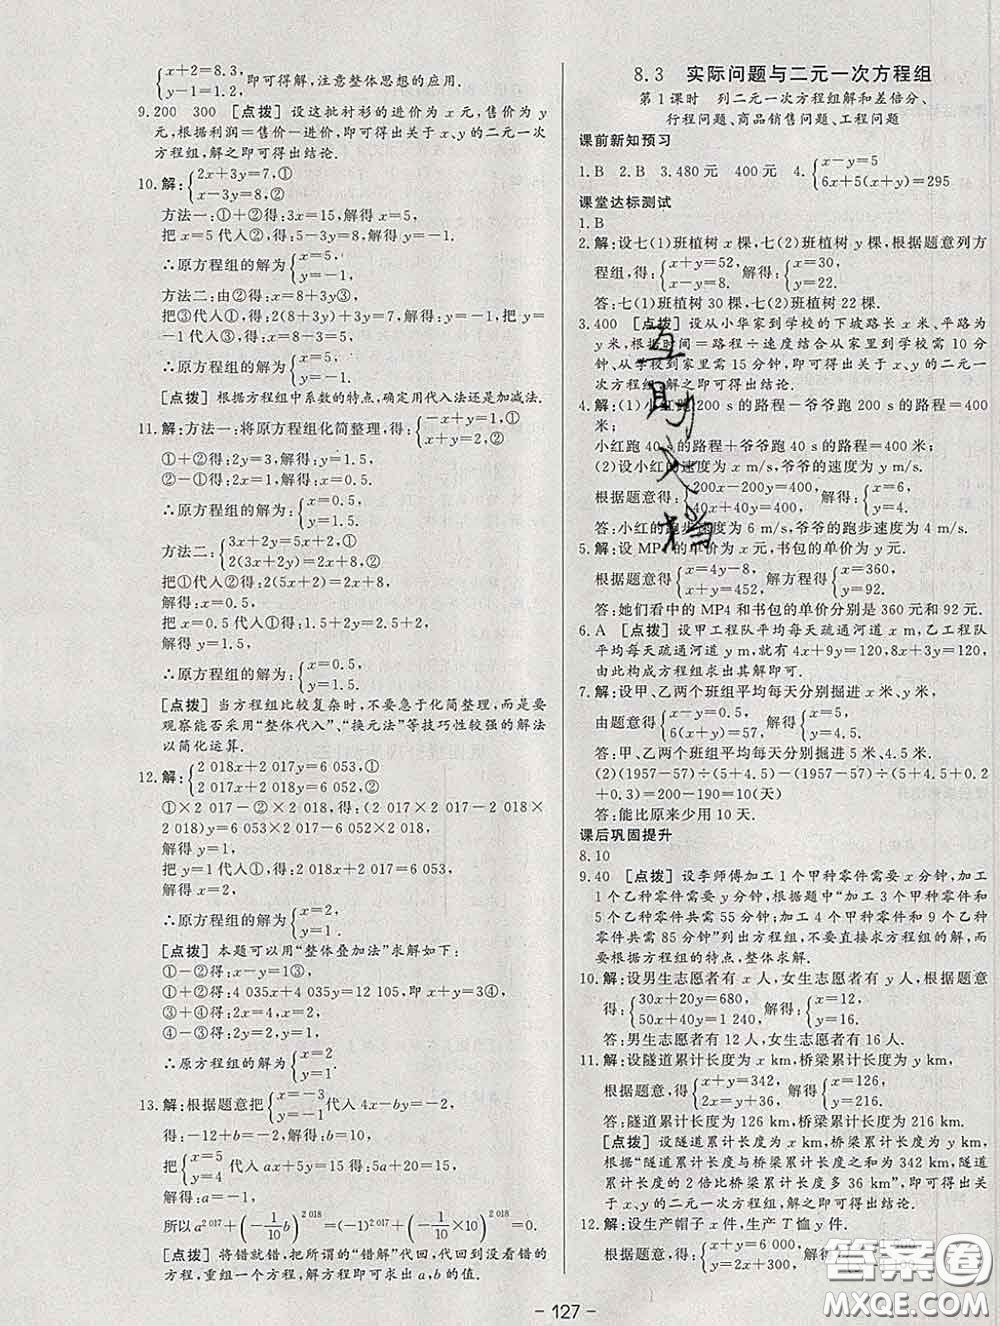 {x+2=8.3, y-1=1.2. 即可得解,注意整体思想的应用.
9.200 300 [点拨] 设这批衬衫的进价为 x 元,售价为 y
元,根据利润=售价-进价,即可得出关于 x、y 的二元一次
方程组,解之即可得出结论.
10.解:{2x+3y=7,① x-3y=8,②
方法一:①+②得:3x=15,解得 x=5,
把 x=5 代入②,得:5-3y=8,解得 y=-1.
∴原方程组的解为{x=5, y=-1.
方法二:由②得:x=8+3y③,
把③代入①,得:2(8+3y)+3y=7,解得 y=-1,把 y=
-1 代入③,得:x=8-3=5,
∴原方程组的解为{x=5, y=-1.
[点拨] 根据方程组中系数的特点,确定用代入法还是加减法.
11.解:方法一:将原方程组化简整理,得:{-x+y=1,① x+y=2,②
①+②得:2y=3,解得:y=1.5,
②-①得:2x=1,解得:x=0.5,
∴原方程组的解为:{x=0.5, y=1.5.
方法二:{3x+2y=5x+2,① 2(3x+2y)=2x+8,②
把①代入②得:2(5x+2)=2x+8,
解得:x=0.5,
把 x=0.5 代入①得:1.5+2y=2.5+2,
解得 y=1.5,
∴原方程组的解为:{x=0.5, y=1.5.
[点拨] 当方程组比较复杂时,不要急于化简整理,而是要
观察能否采用“整体代入”、“换元法”等技巧性较强的解法
以简化运算.
12.解:{2 018x+2 017y=6 053,① 2 017x+2 018y=6 052,②
①×2 017-②×2 018,得:(2 017×2 017-2 018×
2 018)y=6 053×2 017-6 052×2 018,
解得 y=1,
把 y=1 代入①,得:2 018x+2 017=6 053,
解得 x=2,
∴原方程组的解为{x=2, y=1.
[点拨] 本题可以用“整体叠加法”求解如下:
①-②得:x-y=1③,
①+②得:4 035x+4 035y=12 105,即 x+y=3④,
③+④得:2x=4,x=2,
④-③得:2y=2,y=1,
∴原方程组的解为{x=2 y=1.
13.解:根据题意把{x=-3 y=-1 代入 4x-by=-2,
得:-12+b=-2,解得:b=10,
把{x=5 y=4 代入 ax+5y=15 得:5a+20=15,
解得:a=-1,
所以 a^2 017+(-1/10 b)^2 018=(-1)^2 017+(-1/10×10)^2 018=0.
[点拨] 将错就错,把所谓的“错解”代回,代回到没看错的
方程,重组一个方程,解方程即可求出 a,b 的值.
8.3 实际问题与二元一次方程组
第 1 课时 列二元一次方程组解和差倍分、
行程问题、商品销售问题、工程问题
课前新知预习
1.B 2.B 3.480元 400元 4.{x-y=5 6x+5(x+y)=295
课堂达标测试
1.B
2.解:设七(1)班植树 x 棵,七(2)班植树 y 棵,根据题意列方
程组,得:{x+y=52, x-y=8. 解得:{x=30, y=22.
答:七(1)班植树 30 棵,七(2)班植树 22 棵.
3.400 [点拨] 设从小华家到学校的下坡路长 x 米、平路为
y 米,根据时间=路程÷速度结合从家里到学校需 10 分
钟、从学校到家里需 15 分钟,即可得出关于 x、y 的二元一
次方程组,解之即可得出结论.
4.解:(1)小红跑 200 s 的路程-爷爷跑 200 s 的路程=400
米;
小红跑 40 s 的路程+爷爷跑 40 s 的路程=400 米;
(2)设小红的速度为 x m/s,爷爷的速度为 y m/s.
根据题意得:{200x-200y=400, 40x+40y=400. 解得:{x=6, y=4.
答:小红的跑步速度为 6 m/s,爷爷的跑步速度为 4 m/s.
5.解:设 MP4 的单价为 x 元,书包的单价为 y 元.
根据题意得{x=4y-8, x+y=452, 解方程得{x=360, y=92.
答:她们看中的 MP4 和书包的单价分别是 360 元和 92 元.
6.A [点拨] 设甲工程队平均每天疏通河道 x m,乙工程队
平均每天疏通河道 y m,就有 4x+9y=120,8x+3y=120,
由此构成方程组求出其解即可.
7.解:设甲、乙两个班组平均每天分别掘进 x 米、y 米,
由题意得{x-y=0.5, 6(x+y)=57, 解得{x=5, y=4.5,
答:甲、乙两个班组平均每天分别掘进 5 米、4.5 米.
(2)(1957-57)÷(5+4.5)-(1957-57)÷(5+4.5+0.2
+0.3)=200-190=10(天)
答:能比原来少用 10 天.
课后巩固提升
8.10
9.40 [点拨] 设李师傅加工 1 个甲种零件需要 x 分钟,加工
1 个乙种零件需要 y 分钟,根据题中“加工 3 个甲种零件和
5 个乙种零件共需 55 分钟;加工 4 个甲种零件和 9 个乙种
零件共需 85 分钟”列出方程组,不要直接求方程组的解,而
要根据方程组的特点,整体求解.
10.解:设男生志愿者有 x 人,女生志愿者有 y 人,根据题意
得:{30x+20y=680, 50x+40y=1 240, 解得:{x=12, y=16.
答:男生志愿者有 12 人,女生志愿者有 16 人.
11.解:设隧道累计长度为 x km,桥梁累计长度为 y km,
根据题意,得{x+y=342, 2x=y+36, 解得:{x=126, y=216.
答:隧道累计长度为 126 km,桥梁累计长度为 216 km.
[点拨] 设隧道累计长度为 x km,桥梁累计长度为 y km,
根据“隧道累计长度与桥梁累计长度之和为 342 km,隧道
累计长度的 2 倍比桥梁累计长度多 36 km”,即可得出关
于 x、y 的二元一次方程组,解之即可得出结论.
12.解:设生产帽子 x 件,生产 T 恤 y 件.
根据题意,得:{x+y=6 000, 2x+y+300, 解得
互助文档
答案圈
MXQE.COM
- 127 -